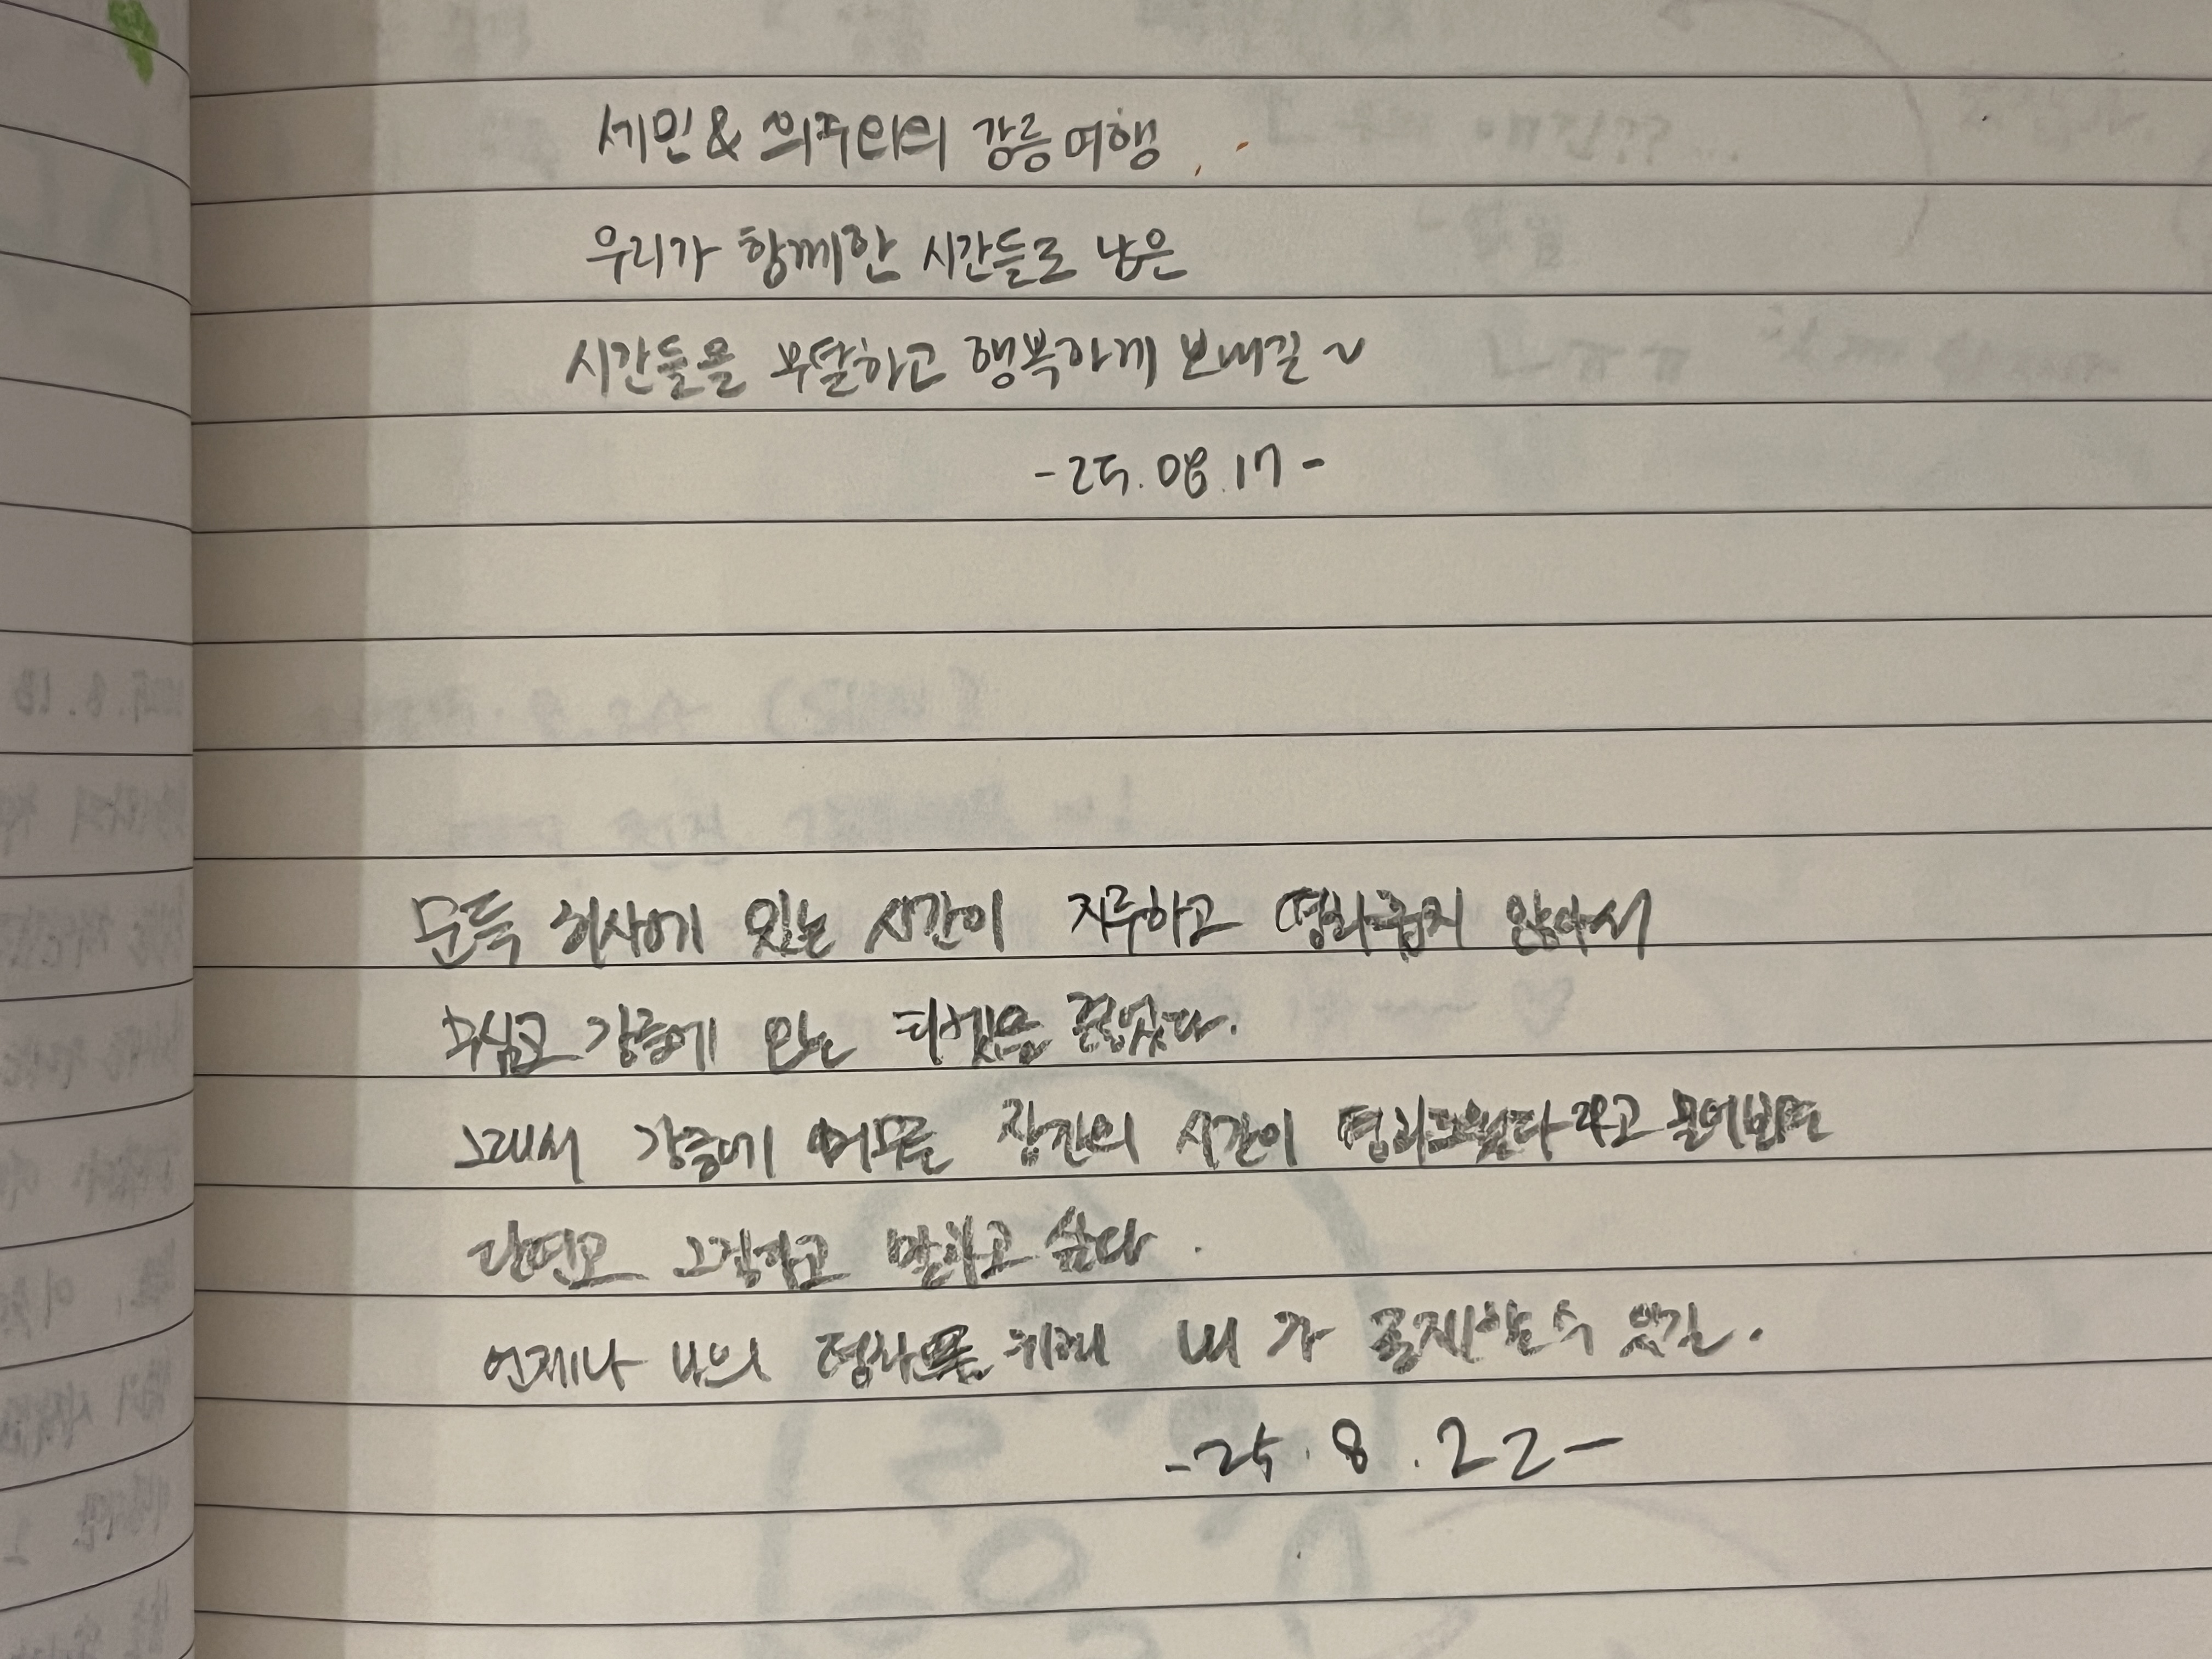 세민 & 의주의 강릉여행
우리가 함께한 시간들로 남은
시간들을 무탈하고 행복하게 보내길~
-25.08.17-
문득 회사에 있는 시간이 지루하고 평화롭지 않아서
무심코 강릉에 오는 티켓을 끊었다.
그래서 강릉에 머무른 잠깐의 시간이 평화로웠다 라고 물어보면
당연코 그렇다고 말하고 싶다.
언제나 나의 평화를 위해 내가 존재할 수 있길.
-25.8.22-